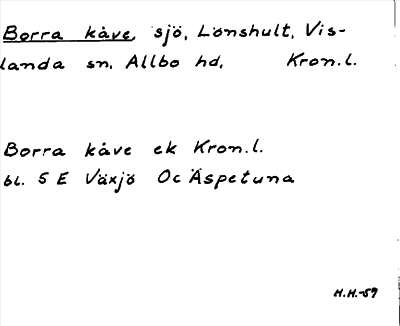 Borra kåve, sjö, Lönshult, Vis-
landa sn. Allbo hd, Kron.l.
Borra kåve ek Kron.l.
bl. 5 E Växjö Oc Äspetuna
H.H.-59